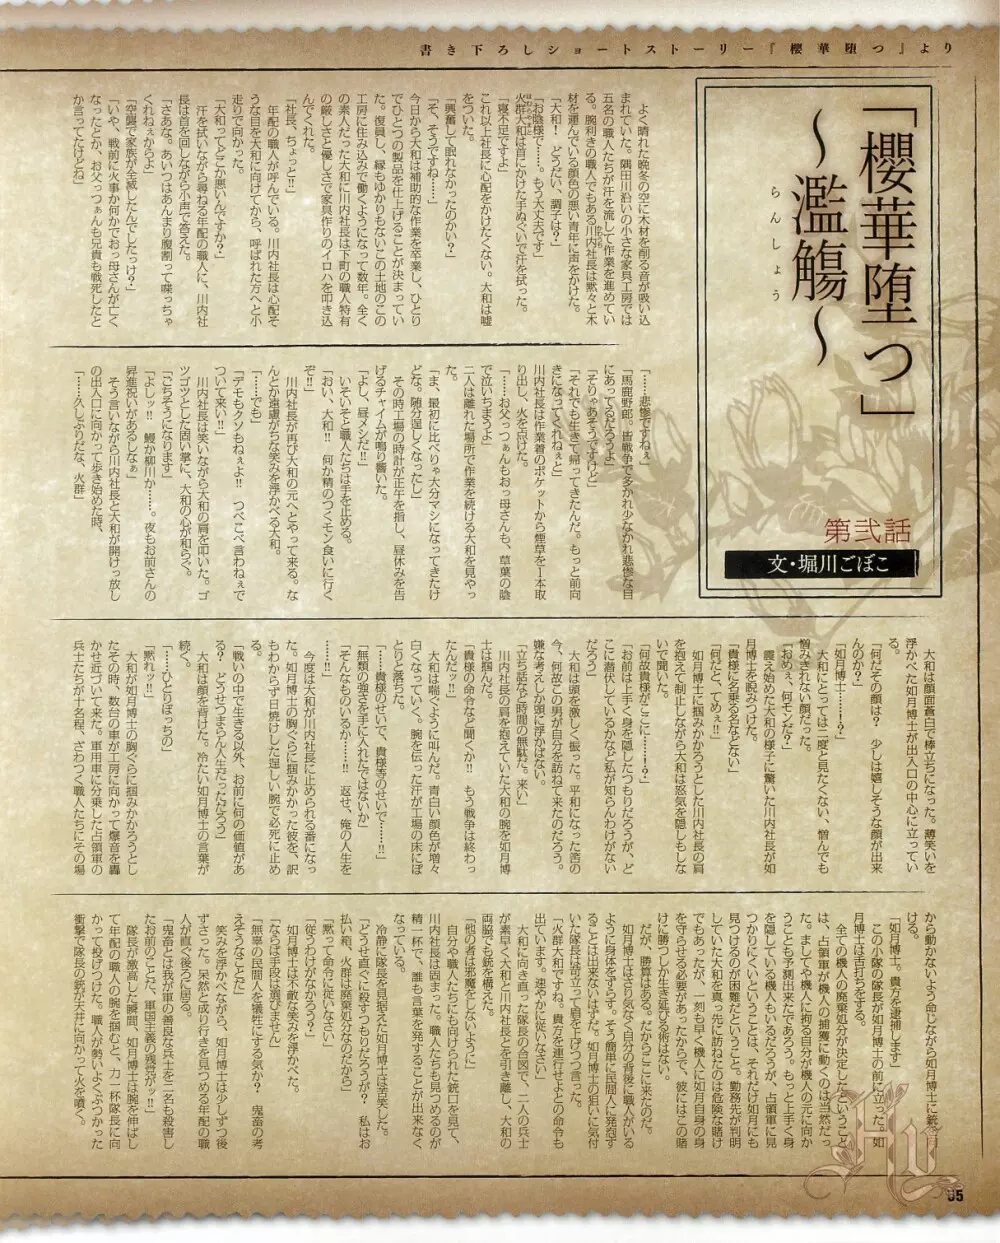 書き下ろしショートストーリー『櫻華堕つ』より
「櫻華堕つ」
～濫觴～
らんしょう
第弐話
文・堀川ごぼこ
よく晴れた晩冬の空に木材を削る音が吸い込
まれていた。隅田川沿いの小さな家具工房では
五名の職人たちが汗を流して作業を進めてい
る。腕利きの職人でもある川内社長は黙々と木
材を運んでいる顔色の悪い青年に声をかけた。
「大和！　どうだい、調子は？」
「お陰様で……。もう大丈夫です」
火群大和は首にかけた手ぬぐいで汗を拭った。
「寝不足ですよ」
これ以上社長に心配をかけたくない。大和は嘘
をついた。
「興奮して眠れなかったのかい？」
「そ、そうですね……」
今日から大和は補助的な作業を卒業し、ひとり
でひとつの製品を仕上げることが決まってい
た。復員し、縁もゆかりもないこの土地のこの
工房に住み込みで働くようになって数年。全く
の素人だった大和に川内社長は下町の職人特有
の厳しさと優しさで家具作りのイロハを叩き込
んでくれた。
「社長、ちょっと!!」
年配の職人が呼んでいる。川内社長は心配そ
うな目を大和に向けてから、呼ばれた方へと小
走りで向かった。
「大和ってどこか悪いんですか？」
汗を拭いながら尋ねる年配の職人に、川内社
長は首を回しながら小声で答えた。
「さあな。あいつはあんまり腹割って喋っちゃ
くれねぇからよ」
「空襲で家族が全滅したんでしたっけ？」
「いや、戦前に火事か何かでおっ母さんが亡く
なったとか、お父っつぁんも兄貴も戦死したと
か言ってたけどね」
「……悲惨ですねぇ」
「馬鹿野郎。皆戦争で多かれ少なかれ悲惨な目
にあってるだろうよ」
「そりゃあそうですけど」
「それでも生きて帰ってきたんだ。もっと前向
きになってくれねぇと」
川内社長は作業着のポケットから煙草を１本取
り出し、火を点けた。
「……お父っつぁんもおっ母さんも、草葉の陰
で泣いちまうよ」
二人は離れた場所で作業を続ける大和を見やっ
た。
「ま、最初に比べりゃ大分マシになってきたけ
どな。随分逞しくなったし」
その時工場の時計が正午を指し、昼休みを告
げるチャイムが鳴り響いた。
「よし、昼メシだ!!」
いそいそと職人たちは手を止める。
「おい、大和!!　何か精のつくモン食いに行く
ぞ!!」
川内社長が再び大和の元へとやって来る。な
んとか遠慮がちな笑みを浮かべる大和。
「……でも」
「デモもクソもねぇよ!!　つべこべ言わねぇで
ついて来い!!」
川内社長は笑いながら大和の肩を叩いた。ゴ
ツゴツとした固い掌に、大和の心が和らぐ。
「ごちそうになります」
「よしッ!!　鰻か柳川か……。夜もお前さんの
昇進祝いがあるしなぁ」
そう言いながら川内社長と大和が開けっ放し
の出入口に向かって歩き始めた時、
「……久しぶりだな、火群」
大和は顔面蒼白で棒立ちになった。薄笑いを
浮かべた如月博士が出入口の中心に立ってい
「何だその顔は？　少しは嬉しそうな顔が出来
んのか？」
「如月博士……!?」
大和にとっては二度と見たくない、憎んでも
憎みきれない顔だった。
「おめぇ、何モンだ？」
震え始めた大和の様子に驚いた川内社長が如
月博士を睨みつけた。
「貴様に名乗る名などない」
「何だと、てめぇ!!」
如月博士に掴みかかろうとした川内社長の肩
を抱えて制止しながら大和は怒気を隠しもしな
いで聞いた。
「何故貴様がここに……!?」
「お前は上手く身を隠したつもりだろうが、ど
こに潜伏しているかなど私が知らんわけがない
だろう」
大和は頭を激しく振った。平和になった筈の
今、何故この男が自分を訪ねて来たのだろう。
嫌な考えしか頭に浮かばない。
「立ち話など時間の無駄だ。来い」
川内社長の肩を抱えていた大和の腕を如月博
士は掴んだ。
「貴様の命令など聞くか!!　もう戦争は終わっ
たんだッ!!」
大和は喘ぐように叫んだ。青白い顔色が増々
白くなっていく。腕を伝った汗が工場の床にぽ
とりと落ちた。
「貴様のせいで、貴様等のせいで……!!」
「無類の強さを手に入れたではないか」
「そんなものいるか……!!　返せ、俺の人生を
……!!」
今度は大和が川内社長に止められる番になっ
た。如月博士の胸ぐらに掴みかかった彼を、訳
もわからず日焼けした逞しい腕で必死に止め
る。
「戦いの中で生きる以外、お前に何の価値があ
る？　どうせつまらん人生だっただろう」
大和は顔を背けた。冷たい如月博士の言葉が
続く。
「……ひとりぼっちの」
「黙れッ!!」
大和が如月博士の胸ぐらに掴みかかろうとし
たその時、数台の車が工房に向かって爆音を轟
かせ近づいて来た。軍用車に分乗した占領軍の
兵士たちが十名程、ざわつく職人たちにその場
から動かないよう命じながら如月博士に銃を向
ける。
「如月博士。貴方を逮捕します」
この小隊の隊長が如月博士の前に立った。如
月博士は舌打ちをする。
全ての機人の廃棄処分が決定したということ
は、占領軍が機人の捕獲に動くのは当然だっ
た。ましてや機人に拘る自分が機人の元に向か
うことも予測出来たであろう。もっと上手く身
を隠している機人もいるだろうが、占領軍に見
つかりにくいということは、それだけ如月にも
見つけるのが困難だということ。勤務先が判明
していた大和を真っ先に訪ねたのは危険な賭け
でもあったが、一刻も早く機人に如月自身の身
を守らせる必要があったからで、彼にはこの賭
けに勝つしか生き延びる術はない。
だが、勝算はある。だからここに来たのだ。
如月博士はさり気なく自分の背後に職人がいる
ように身体をずらす。そう簡単に民間人に発砲す
ることは出来ないはずだ。如月博士の狙いに気付
いた隊長は苛立って眉を上げつつ言った。
「火群大和ですね。貴方を連行せよとの命令も
出ています。速やかに従いなさい」
大和に向き直った隊長の合図で、二人の兵士
が素早く大和と川内社長とを引き離し、大和の
両脇でも銃を構えた。
「他の者は邪魔をしないように」
自分や職人たちにも向けられた銃口を見て、
川内社長は固まった。職人たちも見つめるのが
精一杯で、誰も言葉を発することが出来なく
なっている。
冷静に隊長を見据えた如月博士は苦笑した。
「どうせ直ぐに殺すつもりだろうが？　私はお
払い箱、火群は廃棄処分なのだから」
「黙って命令に従いなさい」
「従うわけがなかろう？」
如月博士は不敵な笑みを浮かべた。
「ならば手段は選びません」
「無辜の民間人を犠牲にする気か？　鬼畜の考
えそうなことだ」
笑みを浮かべながら、如月博士は少しずつ後
ずさった。呆然と成り行きを見つめる年配の職
人が直ぐ後ろに居る。
「鬼畜とは我が軍の善良な兵士を二名も殺害し
たお前のことだ、軍国主義の残党がッ!!」
隊長が激高した瞬間、如月博士は腕を伸ばし
て年配の職人の腕を掴むと、力一杯隊長に向
かって投げつけた。職人が勢いよくぶつかった
衝撃で隊長の銃が天井に向かって火を噴く。
95